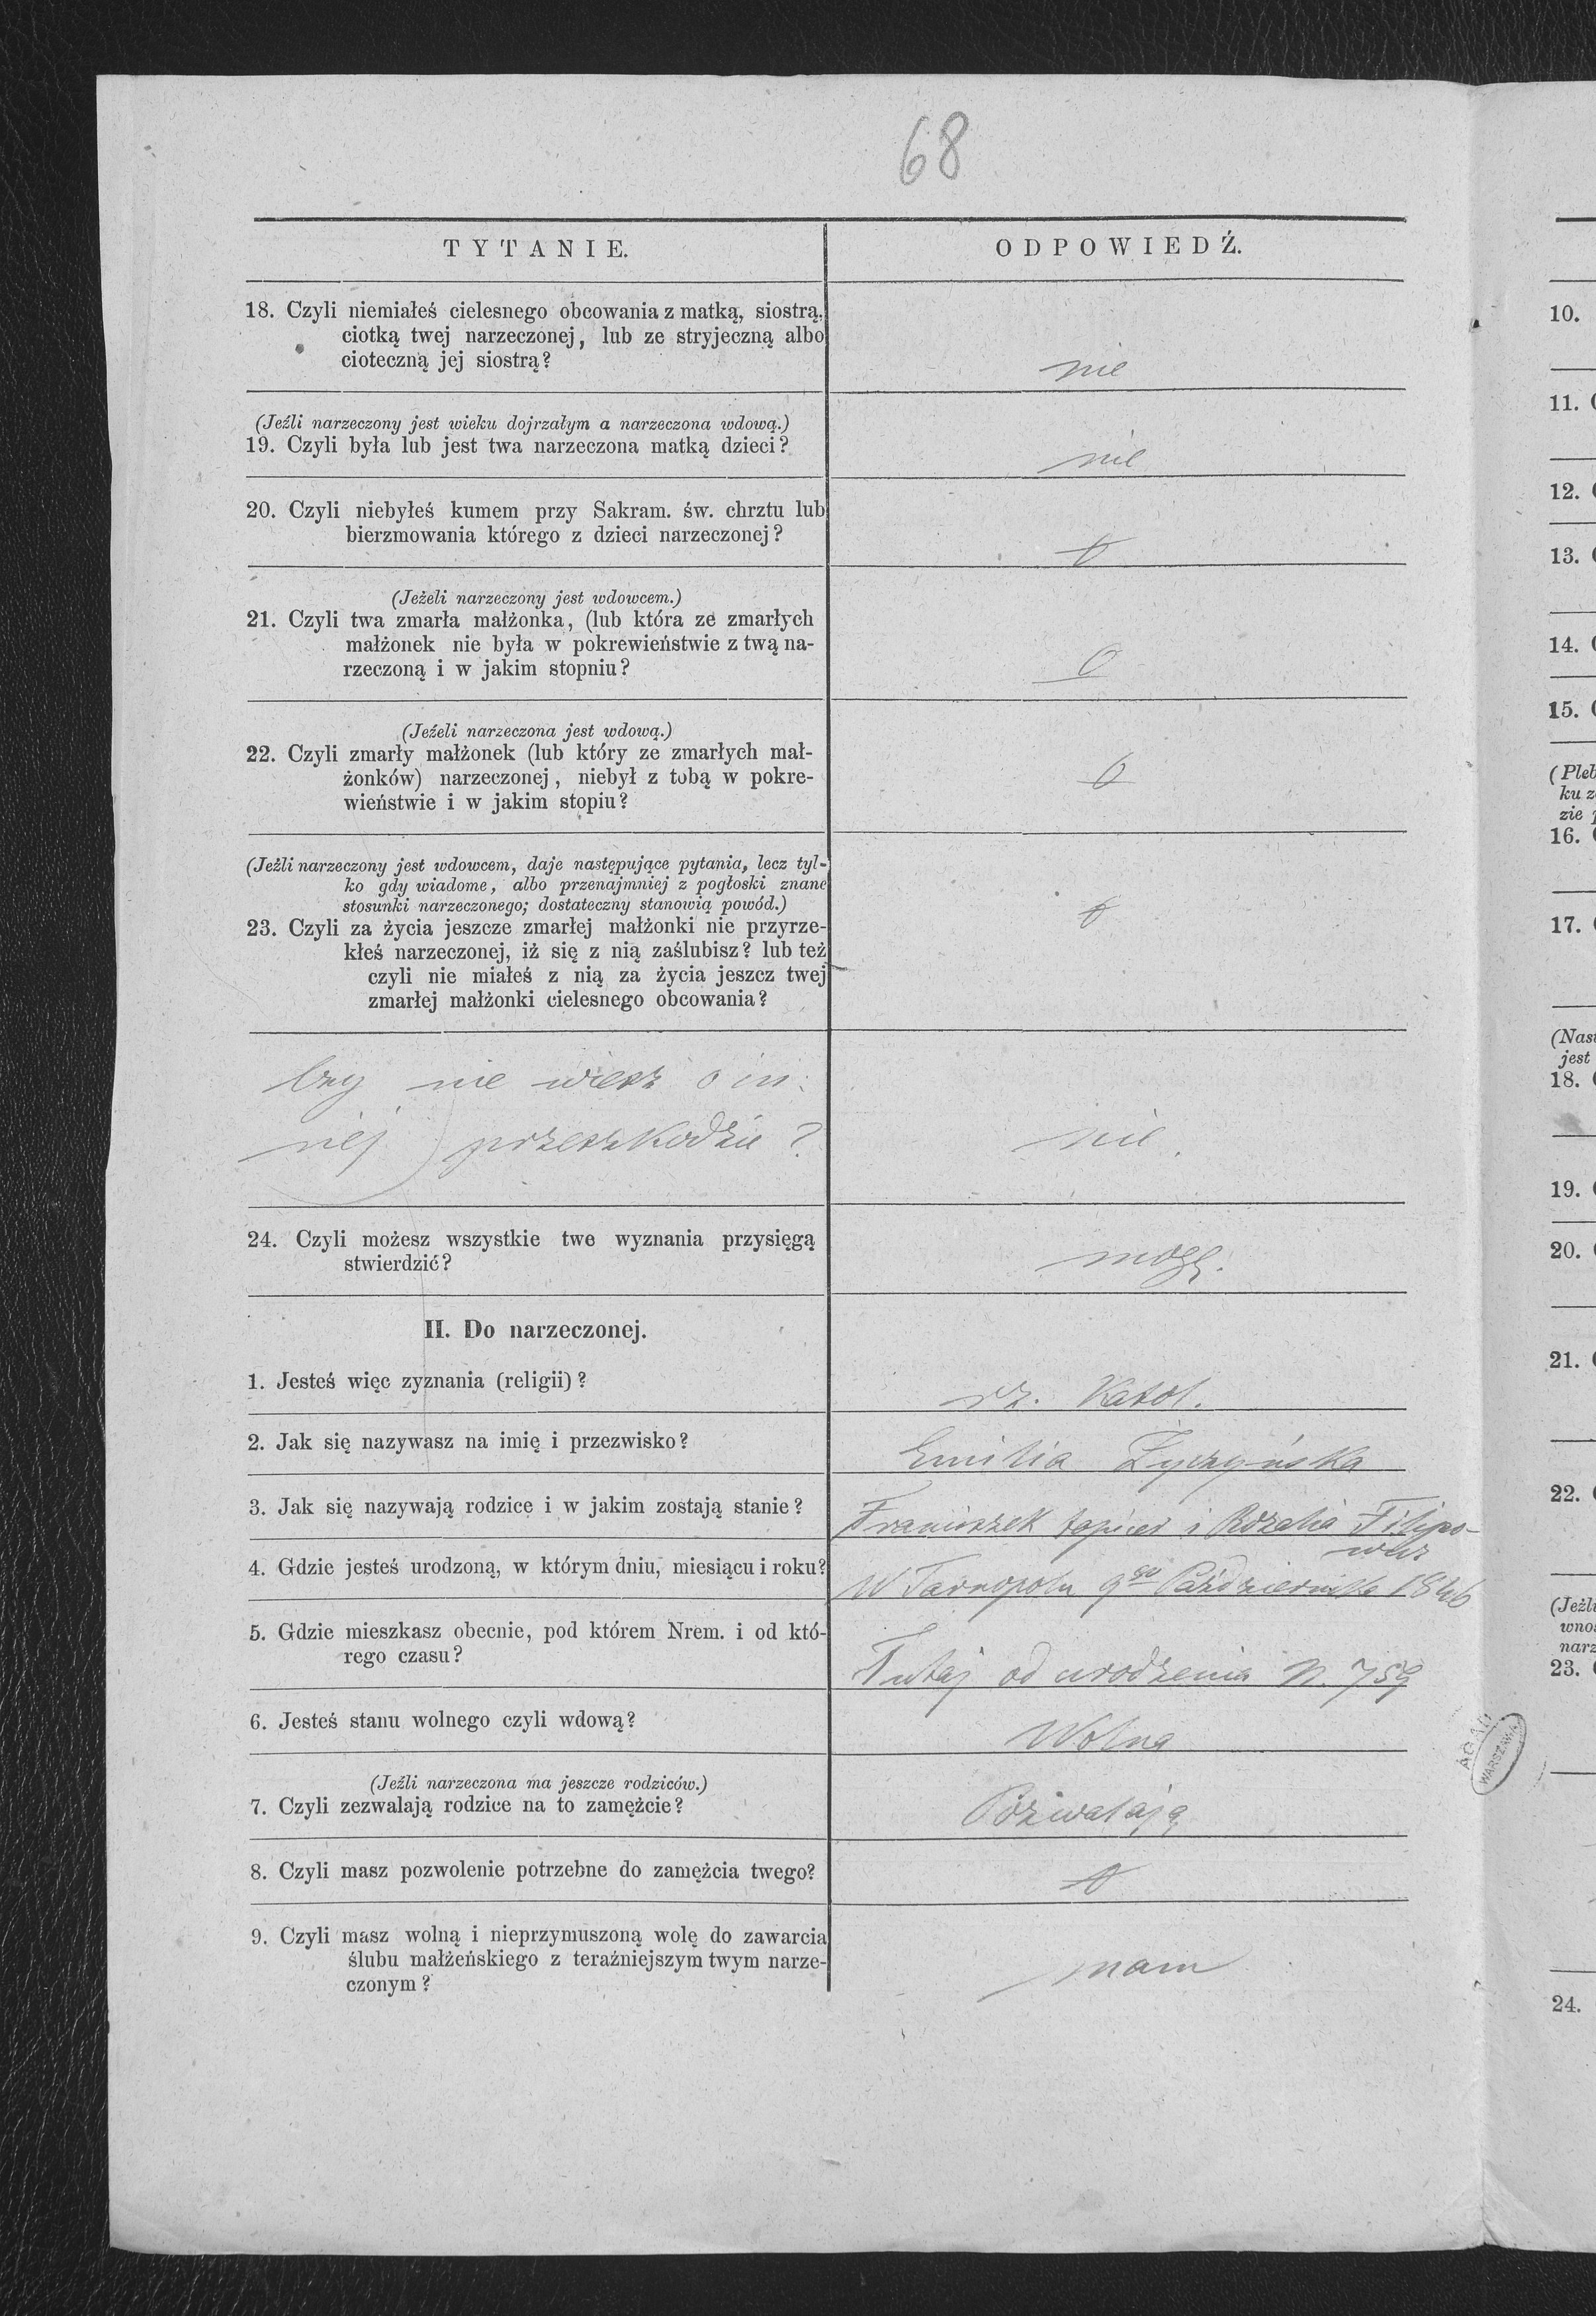 68
TYTANIE.
ODPOWIEDŹ.
18. Czyli niemiałeś cielesnego obcowania z matką, siostrą,
ciotką twej narzeczonej, lub ze stryjeczną albo
cioteczną jej siostrą?
nie
(Jeźli narzeczony jest wieku dojrzałym a narzeczona wdową.)
19. Czyli była lub jest twa narzeczona matką dzieci?
nie
20. Czyli niebyłeś kumem przy Sakram. św. chrztu lub
bierzmowania którego z dzieci narzeczonej?
0
(Jeżeli narzeczony jest wdowcem.)
21. Czyli twa zmarła małżonka, (lub która ze zmarłych
małżonek nie była w pokrewieństwie z twą na-
rzeczoną i w jakim stopniu?
0
(Jeżeli narzeczona jest wdową.)
22. Czyli zmarły małżonek (lub który ze zmarłych mał-
żonków) narzeczonej, niebył z tobą w pokre-
wieństwie i w jakim stopiu?
0
(Jeżli narzeczony jest wdowcem, daje następujące pytania, lecz tyl-
ko gdy wiadome, albo przenajmniej z pogłoski znane
stosunki narzeczonego; dostateczny stanowią powód.)
23. Czyli za życia jeszcze zmarłej małżonki nie przyrze-
kłeś narzeczonej, iż się z nią zaślubisz? lub też
czyli nie miałeś z nią za życia jeszcz twej
zmarłej małżonki cielesnego obcowania?
0
Czy nie wiesz o in-
nej przeszkodzie?
nie.
24. Czyli możesz wszystkie twe wyznania przysięgą
stwierdzić?
mogę.
II. Do narzeczonej.
1. Jesteś więc zyznania (religii)?
rz. katol.
2. Jak się nazywasz na imię i przezwisko?
Emilia Życzyńska
3. Jak się nazywają rodzice i w jakim zostają stanie?
Franciszek tapicer i Rozalia Filipo-
wicz
4. Gdzie jesteś urodzoną, w którym dniu, miesiącu i roku?
W Tarnopolu 9go Października 1846
5. Gdzie mieszkasz obecnie, pod którem Nrem. i od któ-
rego czasu?
Tutaj od urodzenia N. 759
6. Jesteś stanu wolnego czyli wdową?
Wolna
(Jeźli narzeczona ma jeszcze rodziców.)
7. Czyli zezwalają rodzice na to zamężcie?
Pozwalają
8. Czyli masz pozwolenie potrzebne do zamężcia twego?
0
9. Czyli masz wolną i nieprzymuszoną wolę do zawarcia
ślubu małżeńskiego z teraźniejszym twym narze-
czonym?
mam
AGAD
WARSZAWA
10.
11.
12.
13.
14.
15.
(Pleb
ku z
zie
16.
17.
(Nast
jest
18.
19.
20.
21.
22.
(Jeżli
wnoś
narz
23.
24.